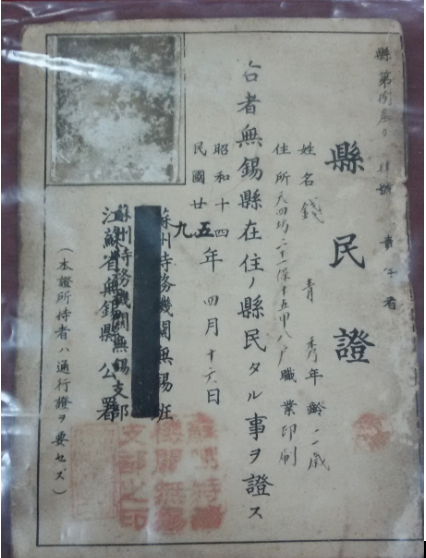 縣民證
姓名 錢青秀 年齡 二一歲
住所 天四坊二十一保十五甲八戶 職業 印刷
右者無錫縣在住ノ縣民タル事ヲ證ス
昭和十四年
民國廿
五九
四月十六日
蘇州特務機關無錫班
蘇州特務機關無錫支部
江蘇省無錫縣公署
(本證所持者ハ通行證ヲ要セズ)
蘇州特務
機關無錫
支部之印